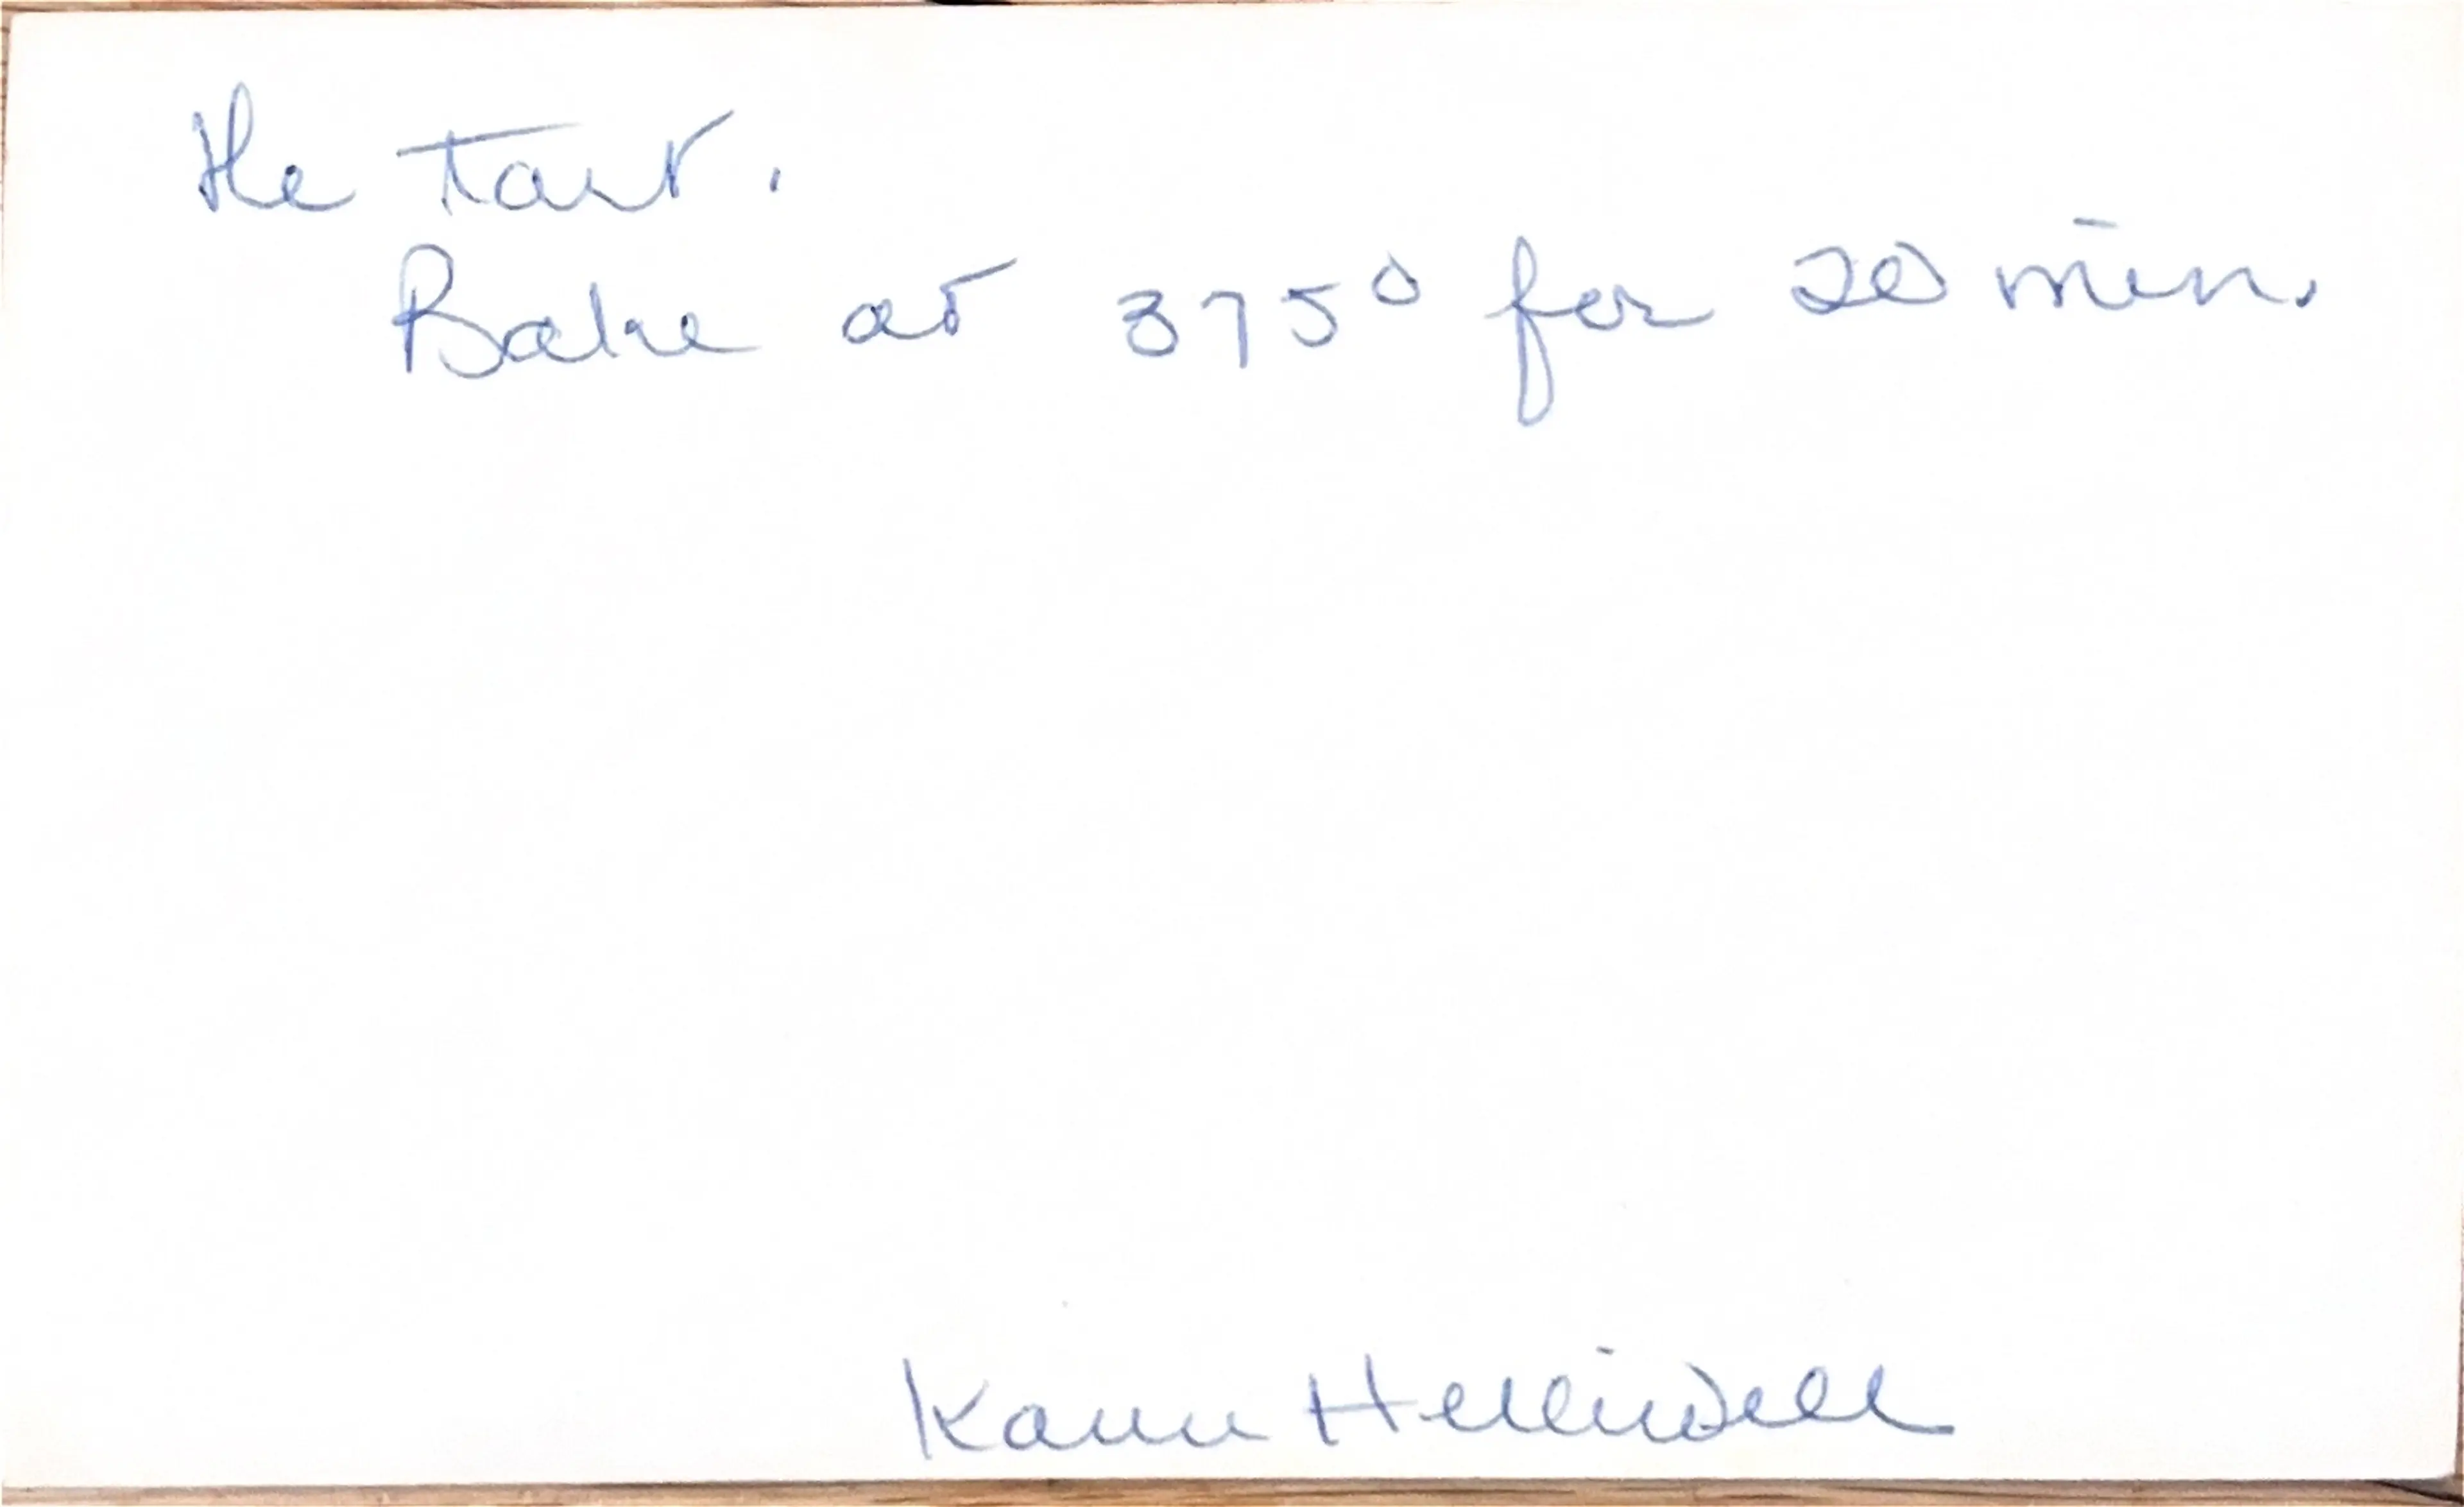 the tart.
Bake at 375° for 20 min.
Karen Helliwell